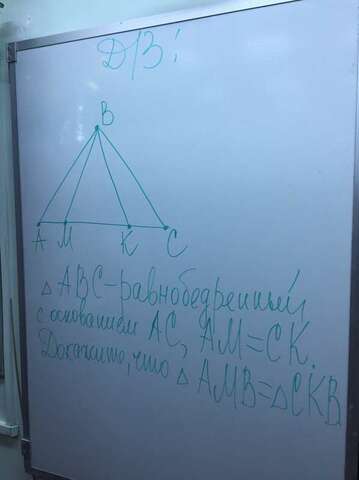 Д/З:
B
A M K C
△ ABC-равнобедренный
с основанием AC, AM=CK.
Докажите, что △ AMB=△CKB